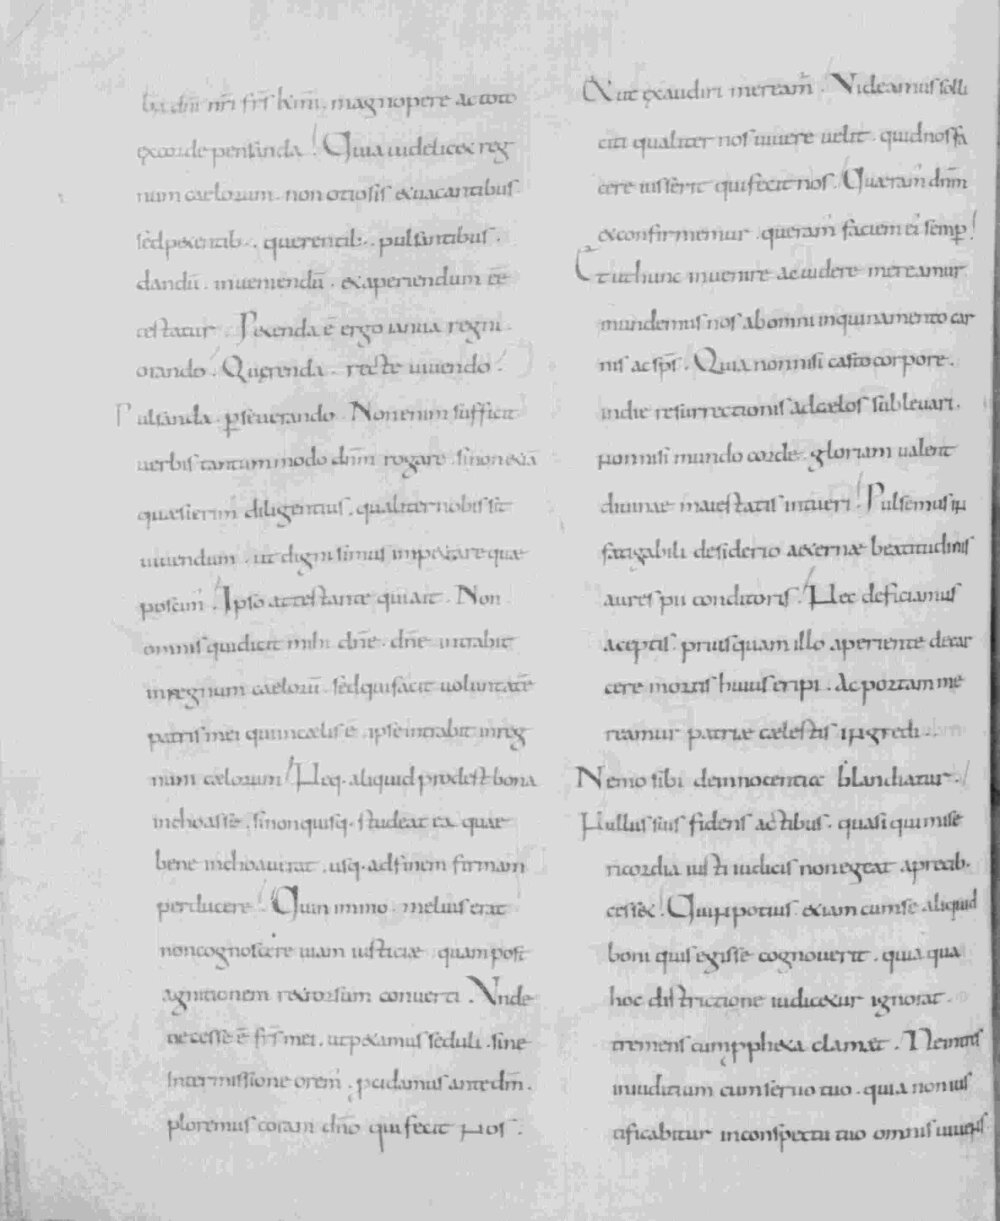 ba dn̄i nr̄i fr̄s km̄i, magnopere ac toto
excorde pensanda. Quia uidelicet reg
num caelorum. non otiosis et uacantibus
sed petentib;. querentib;. pulsantibus.
dandū. inueniendū. et aperiendum eē
testatur. Petenda ē ergo ianua regni.
orando. Querenda. recte uiuendo.
Pulsanda. pseuerando. Non enim sufficit
uerbis tantummodo dn̄m rogare. si non etiā
quaesierim' diligentius. qualiter nobis sit
uiuendum. ut digni simus impetrare quae
poscim'. Ipso attestante qui ait. Non
omnis qui dicit mihi dn̄e. dn̄e intrabit
in regnum caelorū. sed qui facit uoluntatē
patris mei qui in caelis ē. ipse intrabit in reg
num caelorum. Neq. aliquid prodest bona
inchoasse. si non quisq. studeat ea quae
bene inchoauerat. usq. ad finem firmam
perducere. Quin immo. melius erat
non cognoscere uiam iusticiae. quam post
agnitionem retrorsum conuerti. Vnde
necesse ē fr̄s mei. ut petamus seduli. sine
intermissione orem'. pcidamus ante dm̄.
ploremus coram dn̄o qui fecit nos.
Et ut exaudiri meream̄. Videamus solli
citi qualiter nos uiuere uelit. quid nos fa
cere iusserit qui fecit nos. Quaeram' dn̄m
et confirmemur. queram' faciem ei' semp.
Et ut hunc inuenire ac uidere mereamur.
mundemus nos ab omni inquinamento car
nis ac sp̄s. Quia non nisi casto corpore.
in die resurrectionis ad caelos subleuari.
non nisi mundo corde. gloriam ualent
diuinae maiestatis intueri. Pulsemus in
fatigabili desiderio aeternae beatitudinis
aures pii conditoris. Nec deficiamus
aceptis. priusquam illo aperiente de car
cere mortis huius eripi. Ac portam me
reamur patriae caelestis ingredi.
Nemo sibi de innocentiae blandiatur.
Nullus suis fidens actibus. quasi qui mise
ricordia iusti iudicis non egeat a precib.
cesset. Quin potius etiam cum se aliquid
boni quis egisse cognouerit. quia qua
hoc districtione iudicetur ignorat.
tremens cum ppheta clamet. Ne intres
in iudicium cum seruo tuo. quia non ius
tificabitur in conspectu tuo omnis uiuens